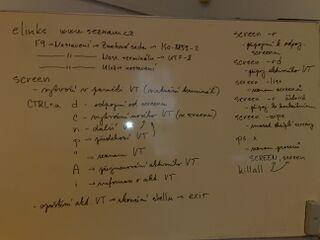 elinks www.seznam.cz
F9 → Nastavení → Znaková sada → ISO-8859-2
—||— Nast. terminálu → UTF-8
—||— Uložit nastavení
screen
- vytvoří se paměti VT (virtuální terminál)
CTRL+a d - odpojení od screenu
c - vytvoření nového VT (ve screenu)
n - další VT
p - předchozí VT
" - seznam VT
A - přejmenování aktivního VT
i - informace o akt. VT
- opuštění akt. VT → ukončení shellu → exit
screen -r
- připojení k odpoj. screenu
screen -rd
- připoj. aktivního VT
screen -list
- seznam screenů
screen -r
- připoj. ke konkrétnímu
screen -wipe
screeny
ps x
- seznam procesů
SCREEN, screen
killall